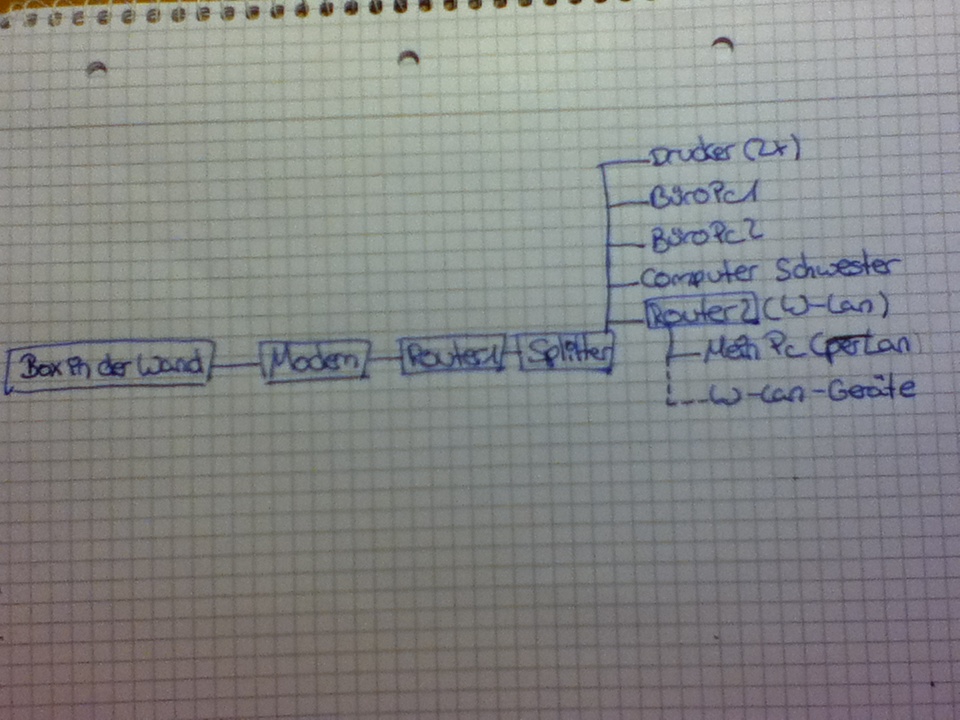 Drucker (2x)
Büro Pc1
Büro Pc2
Computer Schwester
Router2 (W-Lan)
Box in der Wand Modem Router1 Splitter
Mein Pc (per Lan)
W-Lan-Geräte